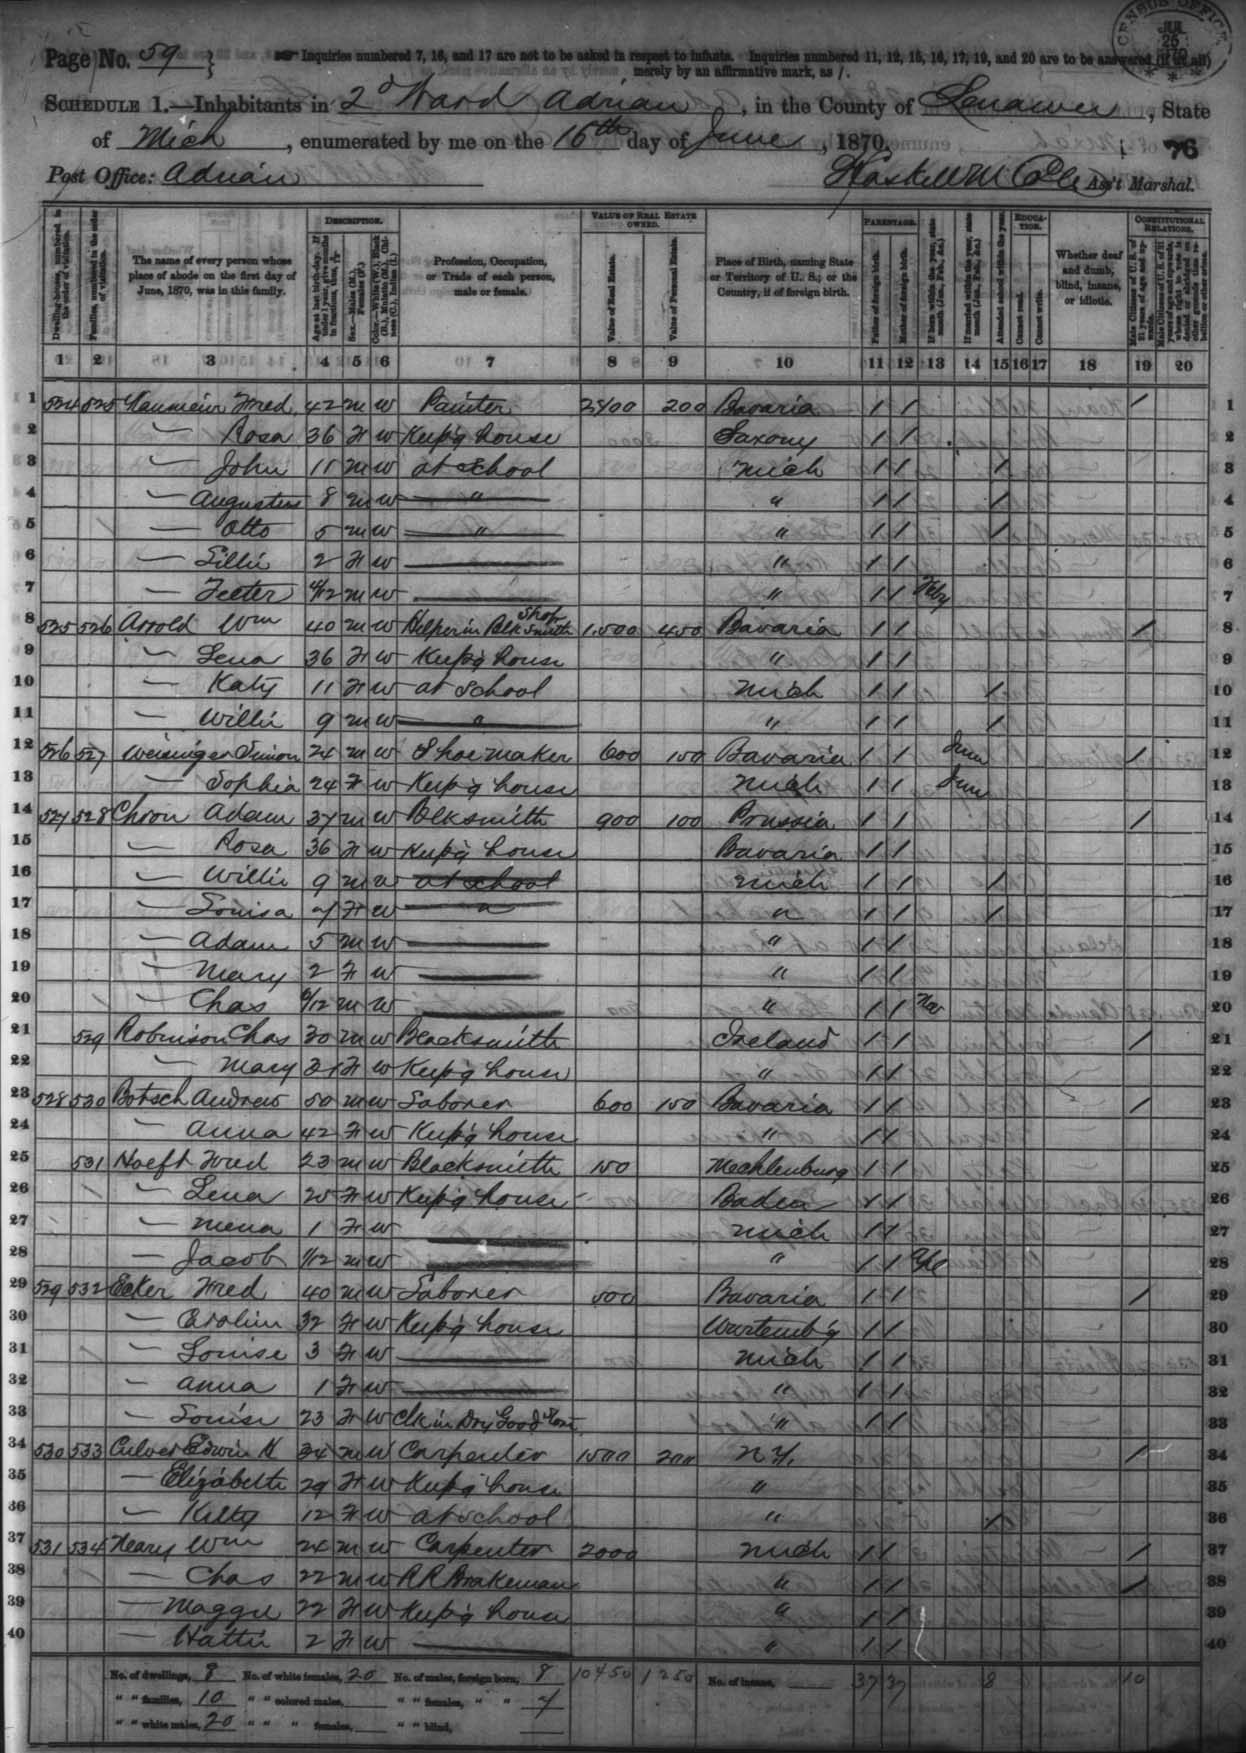 Page No. 59
Inquiries numbered 7, 16, and 17 are not to be asked in respect to infants. Inquiries numbered 11, 12, 15, 16, 17, 19, and 20 are to be answered (if at all)
merely by an affirmative mark, as /.
CENSUS OFFICE
SCHEDULE 1.—Inhabitants in 2d Ward Adrian, in the County of Lenawee, State
of Mich, enumerated by me on the 16th day of June, 1870.
76
Post Office: Adrian
Haskell M Cole, Ass't Marshal.
Dwelling-houses, numbered in the order of visitation.
Families, numbered in the order of visitation.
The name of every person whose place of abode on the first day of June, 1870, was in this family.
DESCRIPTION.
Profession, Occupation, or Trade of each person, male or female.
VALUE OF REAL ESTATE OWNED.
Value of Real Estate.
Value of Personal Estate.
Place of Birth, naming State or Territory of U. S.; or the Country, if of foreign birth.
PARENTAGE.
Father of foreign birth.
Mother of foreign birth.
Attended school within the year.
EDUCATION.
Cannot read.
Cannot write.
Whether deaf and dumb, blind, insane, or idiotic.
CONSTITUTIONAL RELATIONS.
1 2 3 4 5 6 7 8 9 10 11 12 13 14 15 16 17 18 19 20
1 524 525 Fred 42 M W Painter 2400 200 Bavaria / / / 1
2 — Rosa 36 F W Keep'g house Saxony / / 2
3 — John 11 M W at School Mich / / / 3
4 — Augustus 8 M W " " / / / 4
5 — Otto 5 M W " " / / / 5
6 — Lillie 2 F W " / / 6
7 — 4/12 M W " / / Feby 7
8 525 526 Arrold Wm 40 M W Helper in Blk Smith Shop 1,000 450 Bavaria / / / 8
9 — Lena 36 F W Keep'g house " / / 9
10 — Katy 11 F W at School Mich / / / 10
11 — Willie 9 M W " " / / / 11
12 526 527 Simon 24 M W Shoemaker 600 150 Bavaria / / June / 12
13 — Sophia 24 F W Keep'g house Mich / / June 13
14 527 528 Chron Adam 37 M W Blksmith 900 100 Prussia / / / 14
15 — Rosa 36 F W Keep'g house Bavaria / / 15
16 — Willie 9 M W at School Mich / / / 16
17 — Louisa 7 F W " " / / / 17
18 — Adam 5 M W " / / 18
19 — Mary 2 F W " / / 19
20 — Chas M W " / / Nov 20
21 529 Robinson Chas 30 M W Blacksmith Ireland / / / 21
22 — Mary F W Keep'g house " / / 22
23 528 530 Botsch Andrew 50 M W Laborer 600 150 Bavaria / / / 23
24 — Anna 42 F W Keep'g house " / / 24
25 531 Hoeft Fred 23 M W Blacksmith 150 Mechlenburg / / 25
26 — Lena 20 F W Keep'g house Baden / / 26
27 — Mena 1 F W Mich / / 27
28 — Jacob 1/12 M W " / / Apl 28
29 529 532 Ecker Fred 40 M W Laborer 500 Bavaria / / / 29
30 — Caroline 32 F W Keep'g house Wurtemb'g / / 30
31 — Louise 3 F W Mich / / 31
32 — Anna 1 F W " / / 32
33 — Louise 23 F W Clk in Dry Good Store " / / 33
34 530 533 Culver Edwin H 34 M W Carpenter 1500 200 N Y. / 34
35 — Elizabeth 29 F W Keep'g house " 35
36 — Kitty 12 F W at School " / 36
37 531 534 Neary Wm 24 M W Carpenter 2000 Mich / / / 37
38 — Chas 22 M W R R Brakeman " / / / 38
39 — Maggie 22 F W Keep'g house " / / 39
40 — Hattie 2 F W " / / 40
No. of dwellings, 8 No. of white females, 20 No. of males, foreign born, 8 10450 1250 No. of insane, 37 37 8 10
" " families, 10 " " colored males, " " females, " " 7
" " white males, 20 " " " females, " " blind,